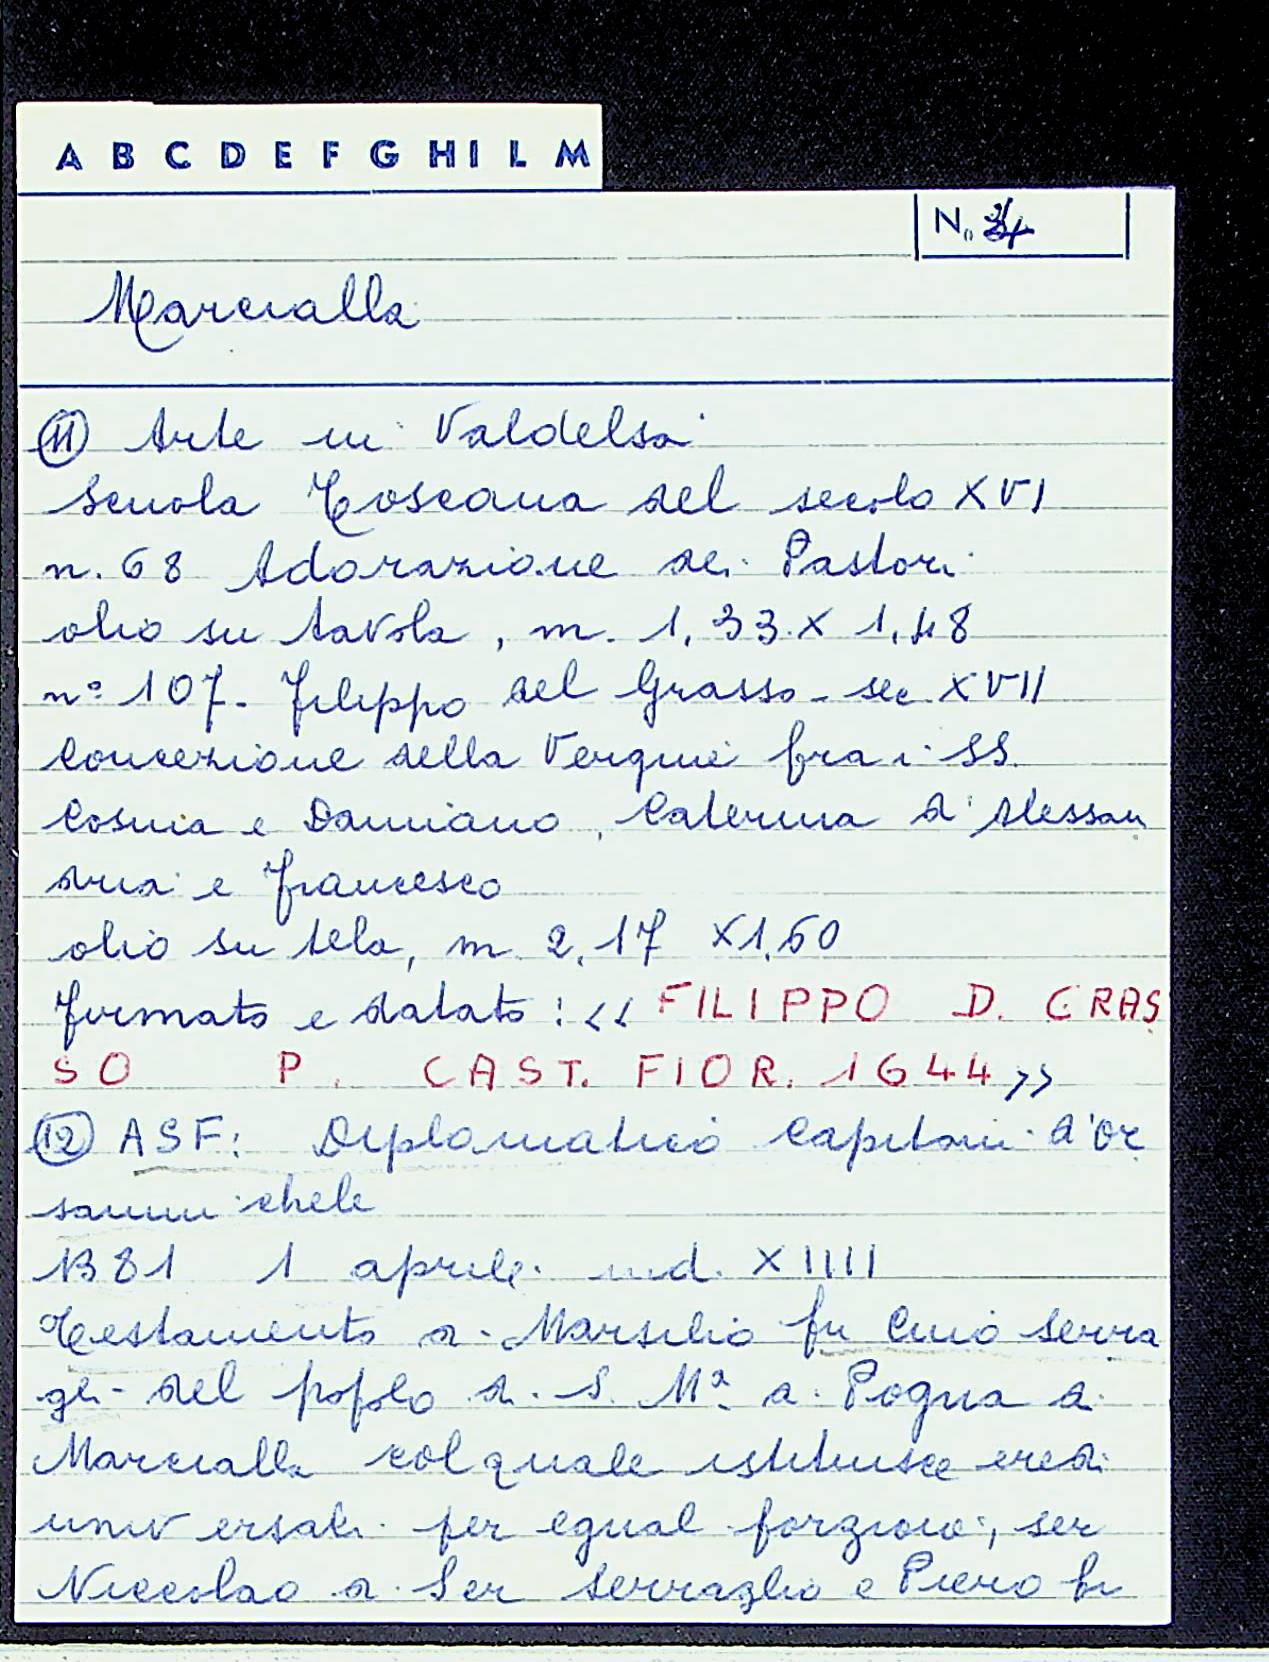 A B C D E F G H I L M
N. 4
Marcialla
(11) Arte in Valdelsa
Scuola Toscana del secolo XVI
n. 68 Adorazione dei Pastori
olio su tavola, m. 1,33 x 1,48
n° 107. Filippo del Grasso - sec XVII
Concezione della Vergine fra i SS.
Cosma e Damiano, Caterina d'Alessan
dria e Francesco
olio su tela, m 2,17 x 1,60
firmato e datato: << FILIPPO D. GRAS
SO P. CAST. FIOR. 1644 >>
(12) ASF: Diplomatico Capitani d'Or
sanmichele
1381 1 aprile ind. XIIII
Testamento di Marsilio fu Cino Serra
gli del popolo di S. Mª a Pogna di
Marcialla col quale istituisce eredi
universali per egual porzioni, ser
Niccolao di Ser Serraglio e Piero fu